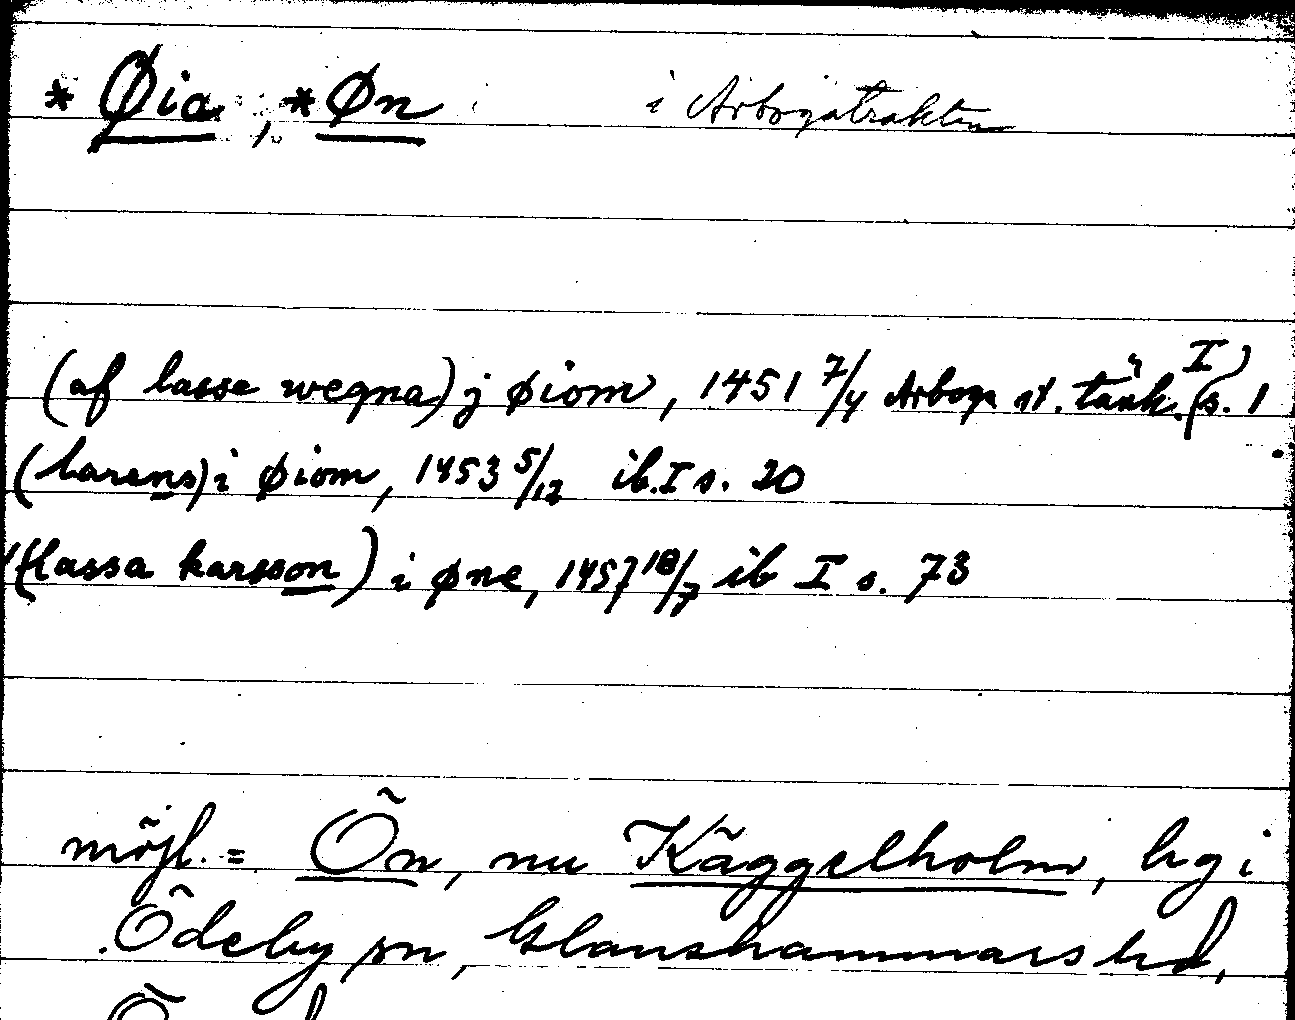 * Øia, *Øn i Arbogatrakten
(af lasse wegna) j øiom, 1451 7/4 Arboga st. tänk. (I) s. 1
(larens) i øiom, 1453 5/12 ib. I s. 20
(lassa karsson) i øne, 1457 18/7 ib I s. 73
möjl. = Ön, nu Käggelholm, hg i
Ödeby sn, Glanshammars hd,